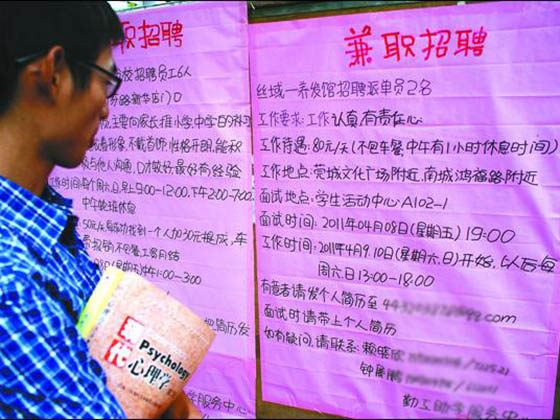 兼职招聘
培校招聘员工6人
苏路新华店门口
主要向家长推小学,中学日的补习
形象,不戴首饰,性格开朗,能积
与他人沟通,口才较好最好有经验
工作时间:每个周六,日,早上9:00-12:00,下午2:00-7:00
中午轮班休息
50元/天,每成功找到一个人加30元提成,车
不包餐,工资月结
1:00-3:00
把简历发
学服务中心
兼职招聘
丝域—养发馆招聘派单员2名
工作要求:工作认真,有责任心
工作待遇:80元/天(不包车餐,中午有1小时休息时间)
工作地点:莞城文化广场附近,南城鸿福路附近
面试地点:学生活动中心A102-1
面试时间:2011年04月08日(星期五)19:00
工作时间:2011年4月9,10日(星期六,日)开始,以后每
周六日13:00-18:00
有意者请发个人简历至
.com
面试时请带上个人简历
如有疑问,请联系:赖
钟
勤工助学服务中
现代心理学
Psychology